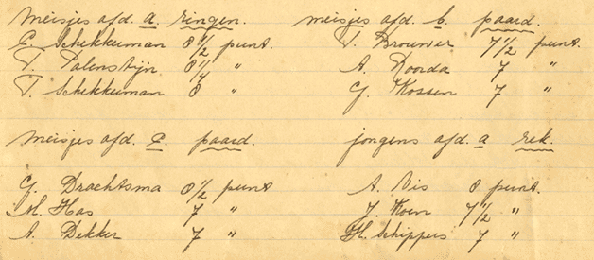 meisjes afd. a. ringen.
C. Schekkerman 8 1/2 punt.
T. Palenstijn 8 1/4 "
T. Schekkerman 8 "
meisjes afd. b. paard.
T. Brouwer 7 1/2 punt.
A. Roorda 7 "
G. Kossen 7 "
Meisjes afd. C. paard.
G. Drachtsma 8 1/2 punt
M. Has 7 "
A. Dekker 7 "
jongens afd. a rek.
A. Vis 8 punt.
J. Koen 7 1/2 "
H. Schippers 7 "